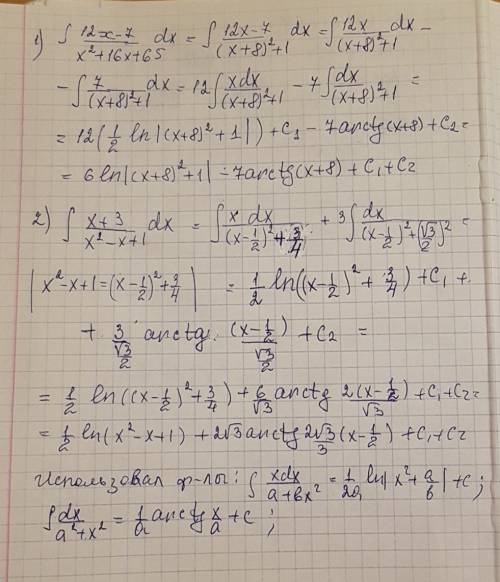 1) ∫ (12x-7)/(x²+16x+65) dx = ∫ (12x-7)/((x+8)²+1) dx = ∫ 12x/((x+8)²+1) dx -
- ∫ 7/((x+8)²+1) dx = 12 ∫ xdx/((x+8)²+1) - 7 ∫ dx/((x+8)²+1) =
= 12(1/2 ln|(x+8)²+1|) + C₁ - 7arctg(x+8) + C₂ =
= 6ln|(x+8)²+1| - 7arctg(x+8) + C₁ + C₂
2) ∫ (x+3)/(x²-x+1) dx = ∫ x dx/((x-1/2)²+3/4) + 3 ∫ dx/((x-1/2)²+(√3/2)²) =
| x²-x+1=(x-1/2)²+3/4 | = 1/2 ln((x-1/2)²+3/4) + C₁ +
+ 3/(√3/2) arctg (x-1/2)/(√3/2) + C₂ =
= 1/2 ln((x-1/2)²+3/4) + 6/√3 arctg 2(x-1/2)/√3 + C₁ + C₂ =
= 1/2 ln(x²-x+1) + 2√3 arctg 2√3/3 (x-1/2) + C₁ + C₂
Использовал ф-лы: ∫ xdx/(a+bx²) = 1/2a ln|x²+a/b| + C ;
∫ dx/(a²+x²) = 1/a arctg x/a + C ;